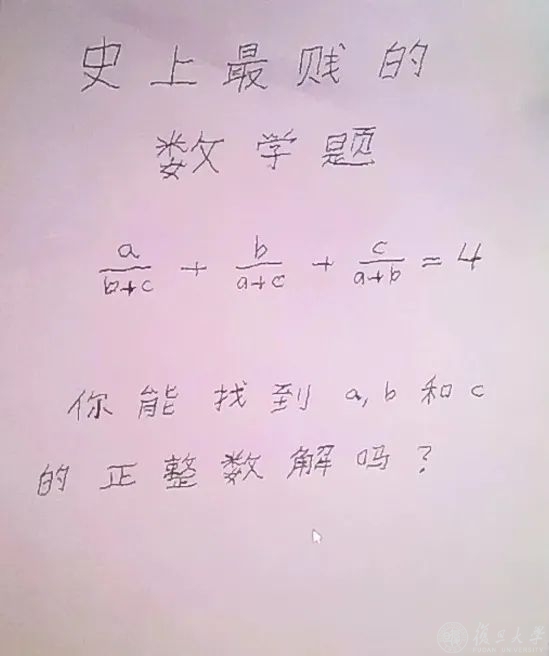 史上最贱的
数学题
a/(b+c) + b/(a+c) + c/(a+b) = 4
你能找到 a, b 和 c
的正整数解吗?
复旦大学
FUDAN UNIVERSITY